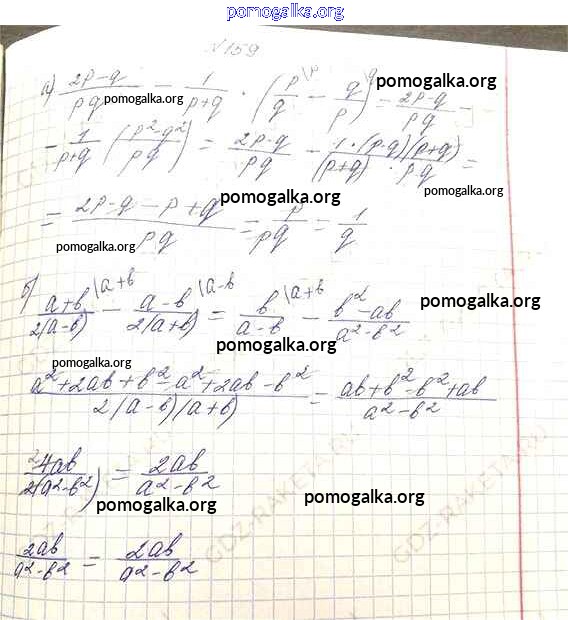 pomogalka.org
№159
а) (2p-q)/(pq) - 1/(p+q) · (p/q \p - q/p \q) = (2p-q)/(pq) - pomogalka.org pomogalka.org
- 1/(p+q) ((p²-q²)/(pq)) = (2p-q)/(pq) - (1·(p-q)(p+q))/((p+q)·pq) = pomogalka.org pomogalka.org
= (2p-q-p+q)/(pq) = p/(pq) = 1/q pomogalka.org
б) (a+b)/(2(a-b)) \a+b - (a-b)/(2(a+b)) \a-b = b/(a-b) \a+b - (b²-ab)/(a²-b²) pomogalka.org pomogalka.org
pomogalka.org
(a²+2ab+b²-a²+2ab-b²)/(2(a-b)(a+b)) = (ab+b²-b²+ab)/(a²-b²)
2 4ab/(2(a²-b²)) = 2ab/(a²-b²)
pomogalka.org pomogalka.org
2ab/(a²-b²) = 2ab/(a²-b²)
GDZ-RAKETA.RU